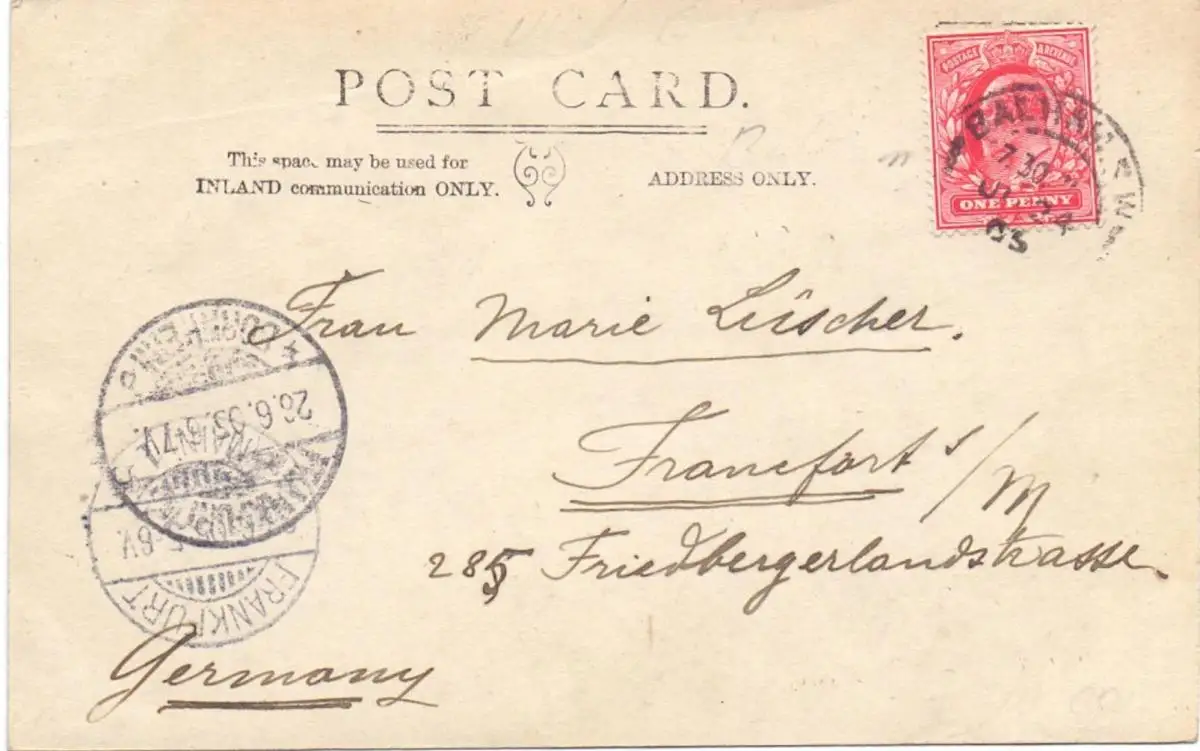 POST CARD.
This space may be used for
INLAND communication ONLY.
ADDRESS ONLY.
POSTAGE & REVENUE
ONE PENNY
BALHAM S.W.
7.30
24
03
Frau Marie Lüscher.
Francfort s/M
285 Friedbergerlandstrasse.
Germany
26.6.03. 6-7V.
FRANKFURT